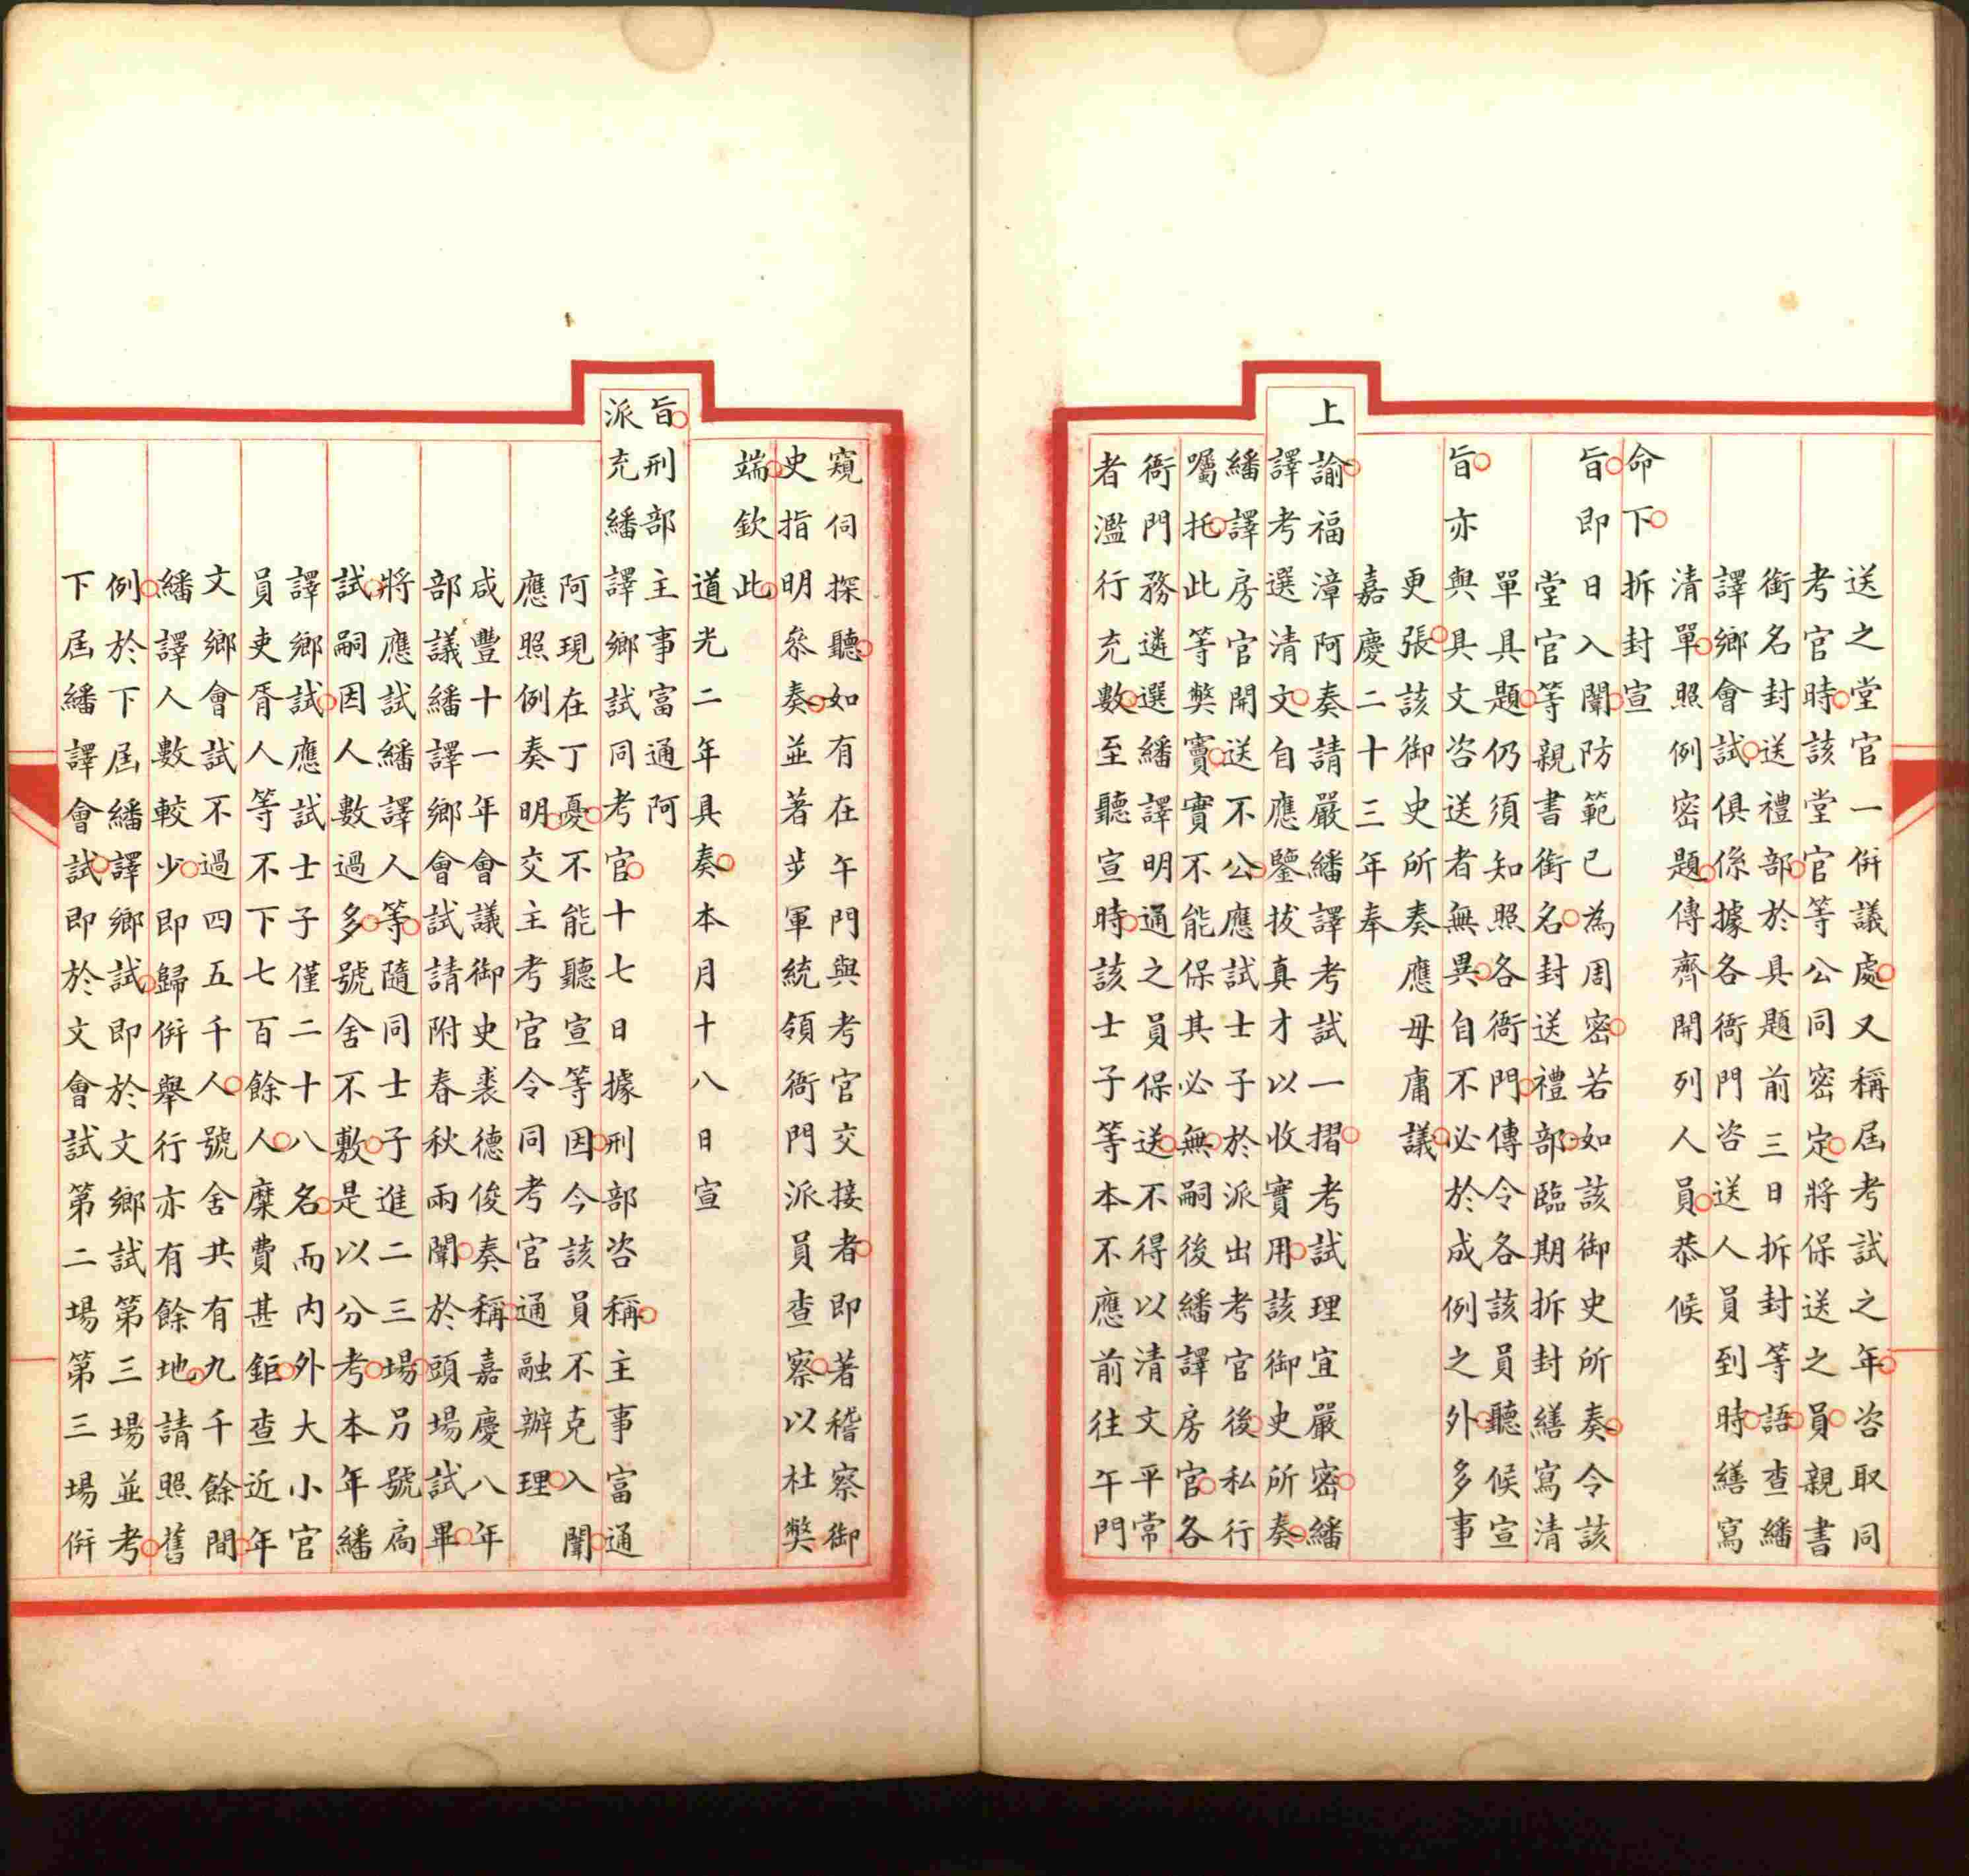 送之堂官一併議處又稱屆考試之年咨取同
考官時該堂官等公同密定將保送之員親書
銜名封送禮部於具題前三日拆封等語查繙
譯鄉會試俱係據各衙門咨送人員到時繕寫
清單照例密題傳齊開列人員恭候
命下拆封宣
旨即日入闈防範已為周密若如該御史所奏令該
堂官等親書銜名封送禮部臨期拆封繕寫清
單具題仍須知照各衙門傳令各該員聽候宣
旨亦與具文咨送者無異自不必於成例之外多事
更張該御史所奏應毋庸議
嘉慶二十三年奉
上諭福漳阿奏請嚴繙譯考試一摺考試理宜嚴密繙
譯考選清文自應鑒拔真才以收實用該御史所奏
繙譯房官開送不公應試士子於派出考官後私行
囑托此等獘竇實不能保其必無嗣後繙譯房官各
衙門務遴選繙譯明通之員保送不得以清文平常
者濫行充數至聽宣時該士子等本不應前往午門
窺伺探聽如有在午門與考官交接者即著稽察御
史指明叅奏並著步軍統領衙門派員查察以杜獘
端欽此
道光二年具奏本月十八日宣
旨刑部主事富通阿
派充繙譯鄉試同考官十七日據刑部咨稱主事富通
阿現在丁憂不能聽宣等因今該員不克入闈
應照例奏明交主考官令同考官通融辦理
咸豐十一年會議御史裘德俊奏稱嘉慶八年
部議繙譯鄉會試請附春秋兩闈於頭場試畢
將應試繙譯人等隨同士子進二三場另號扃
試嗣因人數過多號舍不敷是以分考本年繙
譯鄉試應試士子僅二十八名而內外大小官
員吏胥人等不下七百餘人糜費甚鉅查近年
文鄉會試不過四五千人號舍共有九千餘間
繙譯人數較少即歸併舉行亦有餘地請照舊
例於下屆繙譯鄉試即於文鄉試第三場並考
下屆繙譯會試即於文會試第二場第三場併